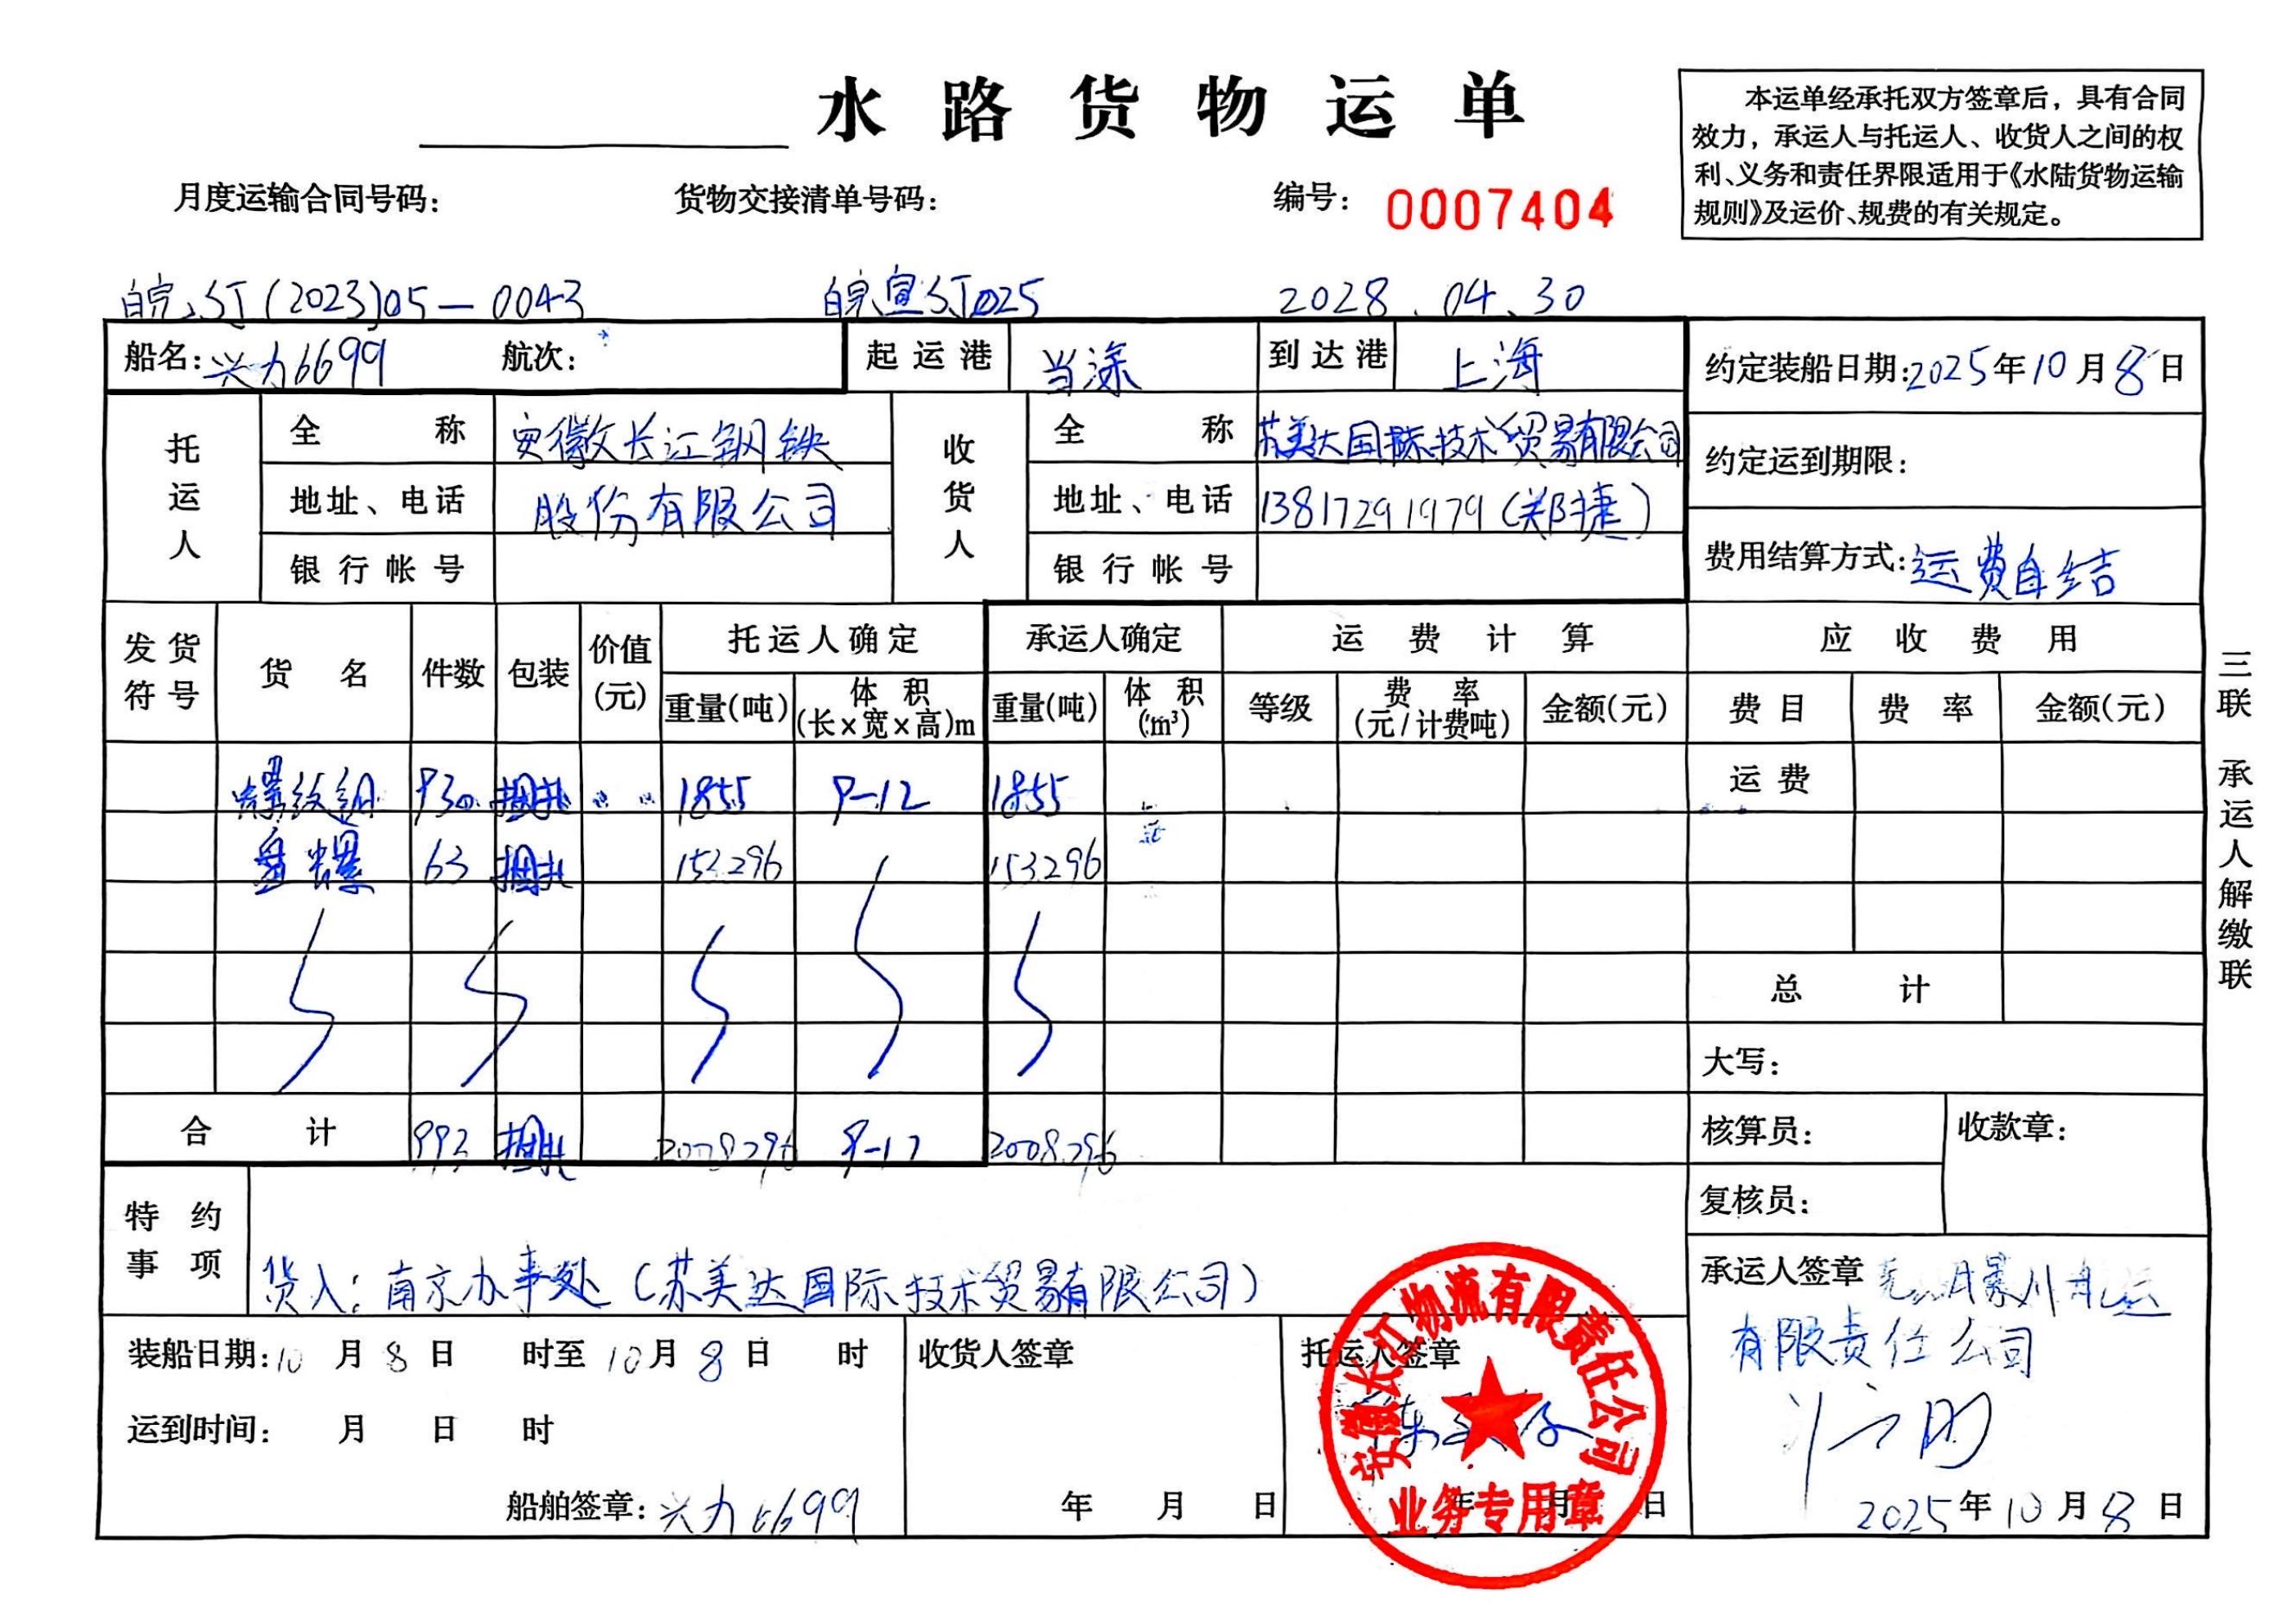 水路货物运单
本运单经承托双方签章后，具有合同
效力，承运人与托运人、收货人之间的权
利、义务和责任界限适用于《水陆货物运输
规则》及运价、规费的有关规定。
月度运输合同号码： 货物交接清单号码： 编号： 0007404
(2023)05-0043 皖宣 025 2028.04.30
船名：兴力6699 航次： 起运港 当涂 到达港 上海 约定装船日期：2025年10月8日
托运人 全称 安徽长江钢铁 收货人 全称 苏美达国际技术贸易有限公司
约定运到期限：
地址、电话 股份有限公司 地址、电话 13817291979（郑捷）
银行帐号 银行帐号 费用结算方式：运费自结
发货符号 货名 件数 包装 价值(元) 托运人确定 承运人确定 运费计算 应收费用
重量(吨) 体积(长×宽×高)m 重量(吨) 体积(m³) 等级 费率(元/计费吨) 金额(元) 费目 费率 金额(元)
螺纹钢 930 捆扎 1855 9-12 1855 运费
盘螺 63 捆扎 153.296 153.296
总计
大写：
合计 993 捆扎 2008.296 9-12 2008.296 核算员： 收款章：
复核员：
特约事项 货入：南京办事处（苏美达国际技术贸易有限公司）
承运人签章
有限责任公司
2025年10月8日
装船日期：10月8日 时至10月8日 时 收货人签章 托运人签章
运到时间： 月 日 时
船舶签章：兴力6699 年 月 日 年 月 日
安徽长江物流有限责任公司
业务专用章
三联 承运人解缴联